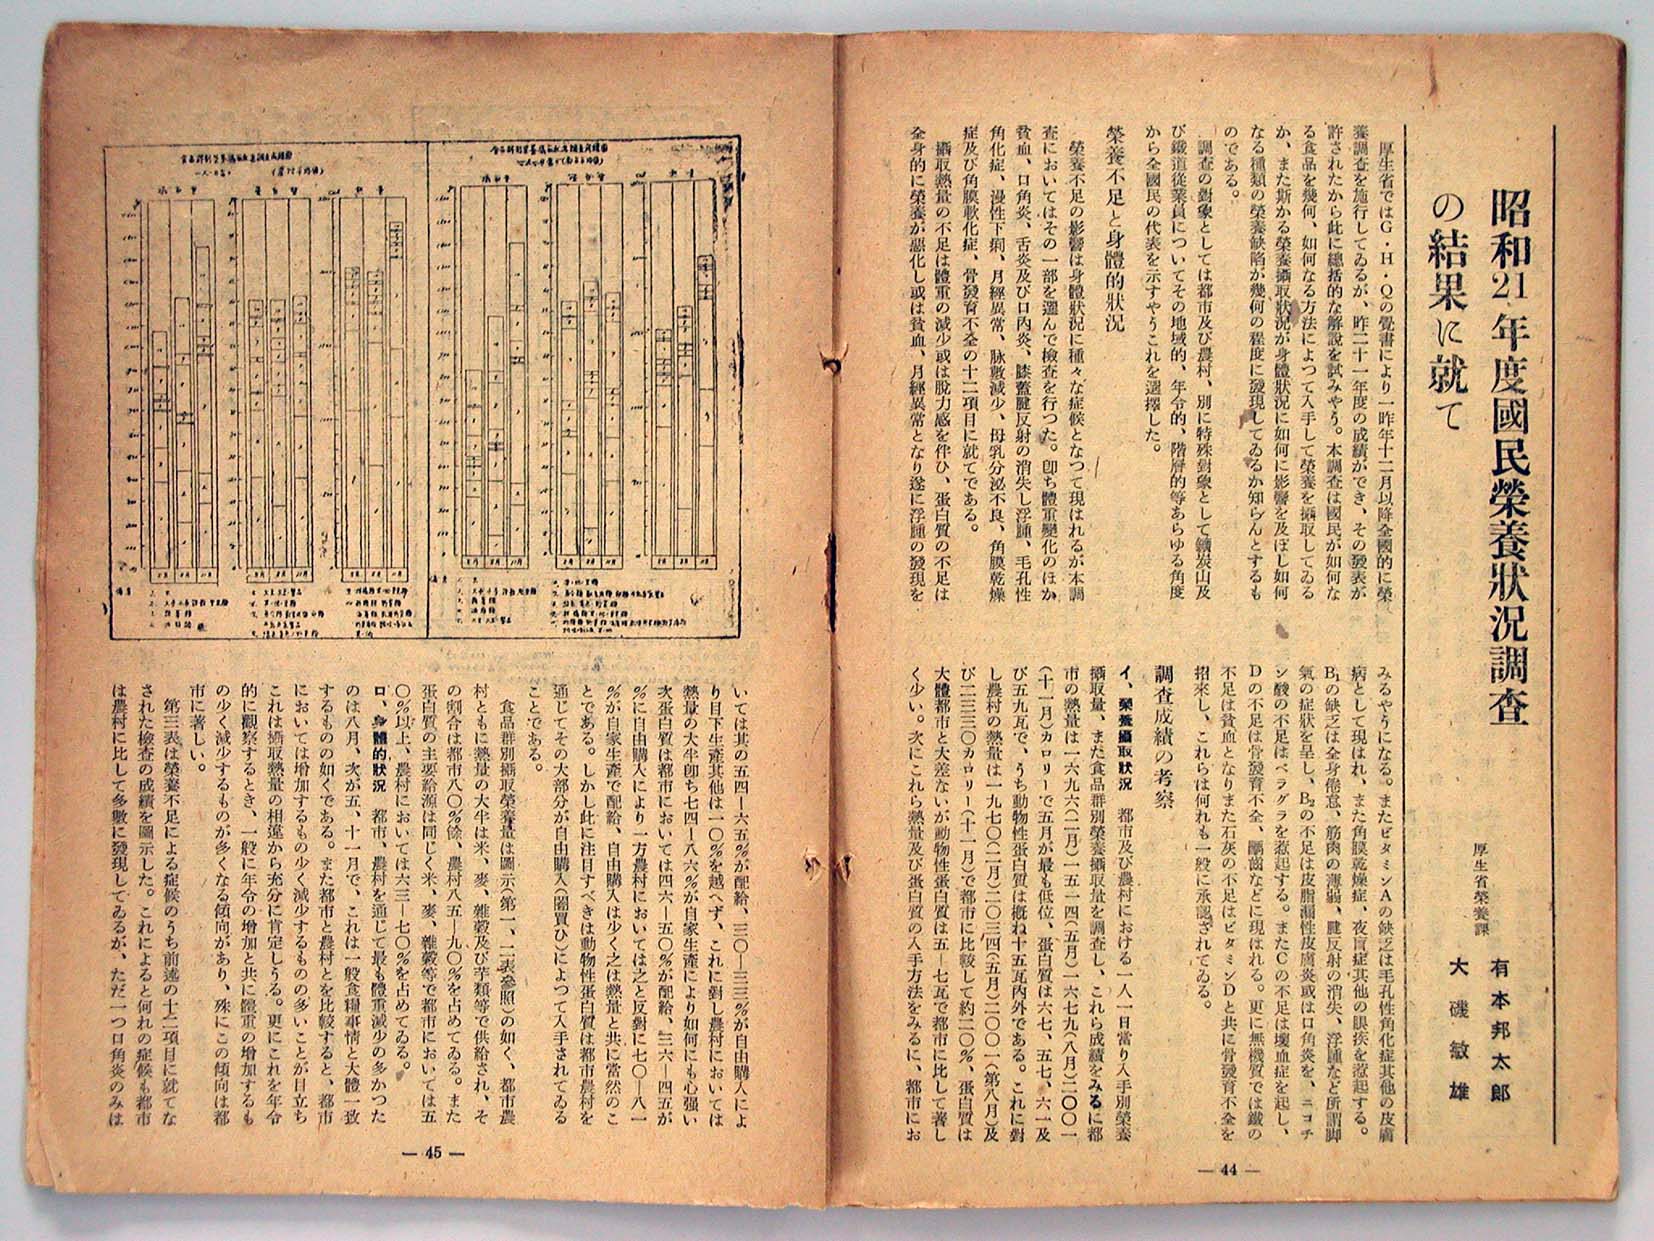 昭和21年度國民榮養狀況調査
の結果に就て
厚生省榮養課
有本邦太郎
大磯敏雄
厚生省ではG・H・Qの覺書により一昨年十二月以降全國的に榮
養調査を施行してゐるが、昨二十一年度の成績ができ、その發表が
許されたから此に總括的な解説を試みやう。本調査は國民が如何な
る食品を幾何、如何なる方法によつて入手して榮養を攝取してゐる
か、また斯かる榮養攝取狀況が身體狀況に如何に影響を及ぼし如何
なる種類の榮養缺陷が幾何の程度に發現してゐるか知らんとするも
のである。
調査の對象としては都市及び農村、別に特殊對象として鑛炭山及
び鐵道從業員についてその地域的、年令的、階層的等あらゆる角度
から全國民の代表を示すやうこれを選擇した。
榮養不足と身體的狀況
榮養不足の影響は身體狀況に種々な症候となつて現はれるが本調
査においてはその一部を選んで檢査を行つた。卽ち體重變化のほか
貧血、口角炎、舌炎及び口內炎、膝蓋腱反射の消失し浮腫、毛孔性
角化症、漫性下痢、月經異常、脉數減少、母乳分泌不良、角膜乾燥
症及び角膜軟化症、骨發育不全の十二項目に就てである。
攝取熱量の不足は體重の減少或は脫力感を伴ひ、蛋白質の不足は
全身的に榮養が惡化し或は貧血、月經異常となり遂に浮腫の發現を
みるやうになる。またビタミンAの缺乏は毛孔性角化症其他の皮膚
病として現はれ、また角膜乾燥症、夜盲症其他の眼疾を惹起する。
B₁の缺乏は全身倦怠、筋肉の薄弱、腱反射の消失、浮腫など所謂脚
氣の症狀を呈し、B₂の不足は皮脂漏性皮膚炎或は口角炎を、ニコチ
ン酸の不足はペラグラを惹起する。またCの不足は壞血症を起し、
Dの不足は骨發育不全、齲齒などに現はれる。更に無機質では鐵の
不足は貧血となりまた石灰の不足はビタミンDと共に骨發育不全を
招來し、これらは何れも一般に承認されてゐる。
調査成績の考察
イ、榮養攝取狀況 都市及び農村における一人一日當り入手別榮養
攝取量、また食品群別榮養攝取量を調査し、これら成績をみるに都
市の熱量は一六九六(二月)一五一四(五月)一六七九(八月)二〇〇一
(十一月)カロリーで五月が最も低位、蛋白質は六七、五七、六一及
び五九瓦で、うち動物性蛋白質は概ね十五瓦內外である。これに對
し農村の熱量は一九七〇(二月)二〇三四(五月)二〇〇一(第八月)及
び二三三〇カロリー(十一月)で都市に比較して約二〇%、蛋白質は
大體都市と大差ないが動物性蛋白質は五—七瓦で都市に比して著し
く少い。次にこれら熱量及び蛋白質の入手方法をみるに、都市にお
— 44 —
いては其の五四—六五%が配給、三〇—三三%が自家購入によ
り目下生產其他は一〇%を越へず、これに對し農村においては
熱量の大半卽ち七四—八六%が自家生產により如何にも心强い
次蛋白質は都市においては四六—五〇%が配給、三六—四五が
%に自由購入により一方農村においては之と反對に七〇—八一
%が自家生產で配給、自由購入は少く之は熱量と共に當然のこ
とである。しかし此に注目すべきは動物性蛋白質は都市農村を
通じてその大部分が自由購入(闇買ひ)によつて入手されてゐる
ことである。
食品群別攝取榮養量は圖示(第一、二表參照)の如く、都市農
村ともに熱量の大半は米、麥、雜穀及び芋類等で供給され、そ
の割合は都市八〇%餘、農村八五—九〇%を占めてゐる。また
蛋白質の主要給源は同じく米、麥、雜穀等で都市においては五
〇%以上、農村においては六三—七〇%を占めてゐる。
ロ、身體的狀況 都市、農村を通じて最も體重減少の多かつた
のは八月、次が五、十一月で、これは一般食糧事情と大體一致
するものの如くである。また都市と農村とを比較すると、都市
においては增加するもの少く減少するものの多いことが目立ち
これは攝取熱量の相違から充分に肯定しうる。更にこれを年令
的に觀察するとき、一般に年令の增加と共に體重の增加するも
の少く減少するものが多くなる傾向があり、殊にこの傾向は都
市に著しい。
第三表は榮養不足による症候のうち前述の十二項目に就てな
された檢査の成績を圖示した。これによると何れの症候も都市
は農村に比して多數に發現してゐるが、ただ一つ口角炎のみは
— 45 —